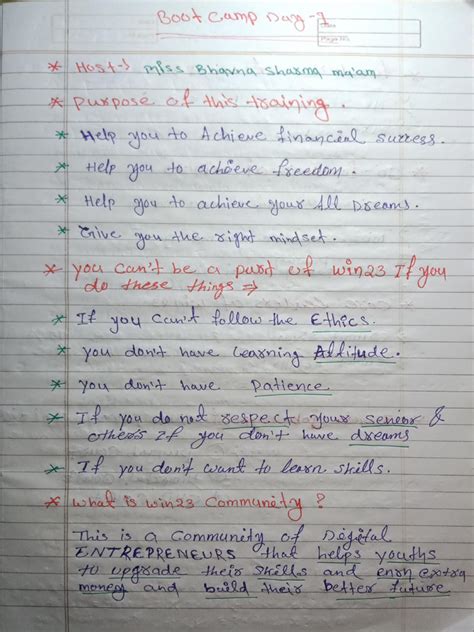 Boot Camp Day-7
Page No.
* Host → Miss Bhavna Sharma ma'am
* Purpose of this training.
* Help you to Achieve financial success.
* Help you to achieve freedom.
* Help you to achieve your All Dreams.
* Give you the right mindset.
* you can't be a part of win23 If you
do these things ⇒
* If you can't follow the Ethics.
* you don't have Learning Altitude.
* you don't have Patience
* If you do not respect your senior &
other's If you don't have dreams
* If you don't want to learn skills.
* what is win23 Community ?
This is a Community of Digital
ENTREPRENEURS that helps youths
to upgrade their skills and enrn extra
money and build their better future